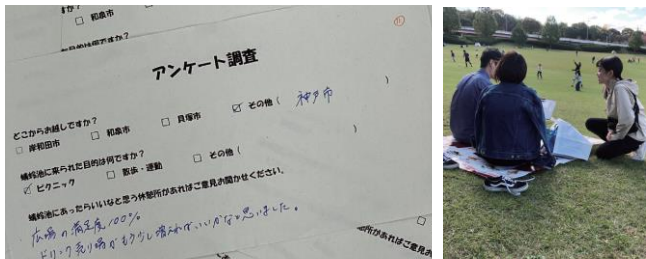 か?
□ 和泉市
アンケート調査
どこからお越しですか?
□ 岸和田市 □ 和泉市 □ 貝塚市 ☑ その他( 神戸市 )
蜻蛉池に来られた目的は何ですか?
☑ ピクニック □ 散歩・運動 □ その他( )
蜻蛉池にあったらいいなと思う休憩所があればご意見お聞かせください。
広場の満足度100%
ドリンク売り場がもう少し増えればいいかなと思いました。
休憩所があればご意見お